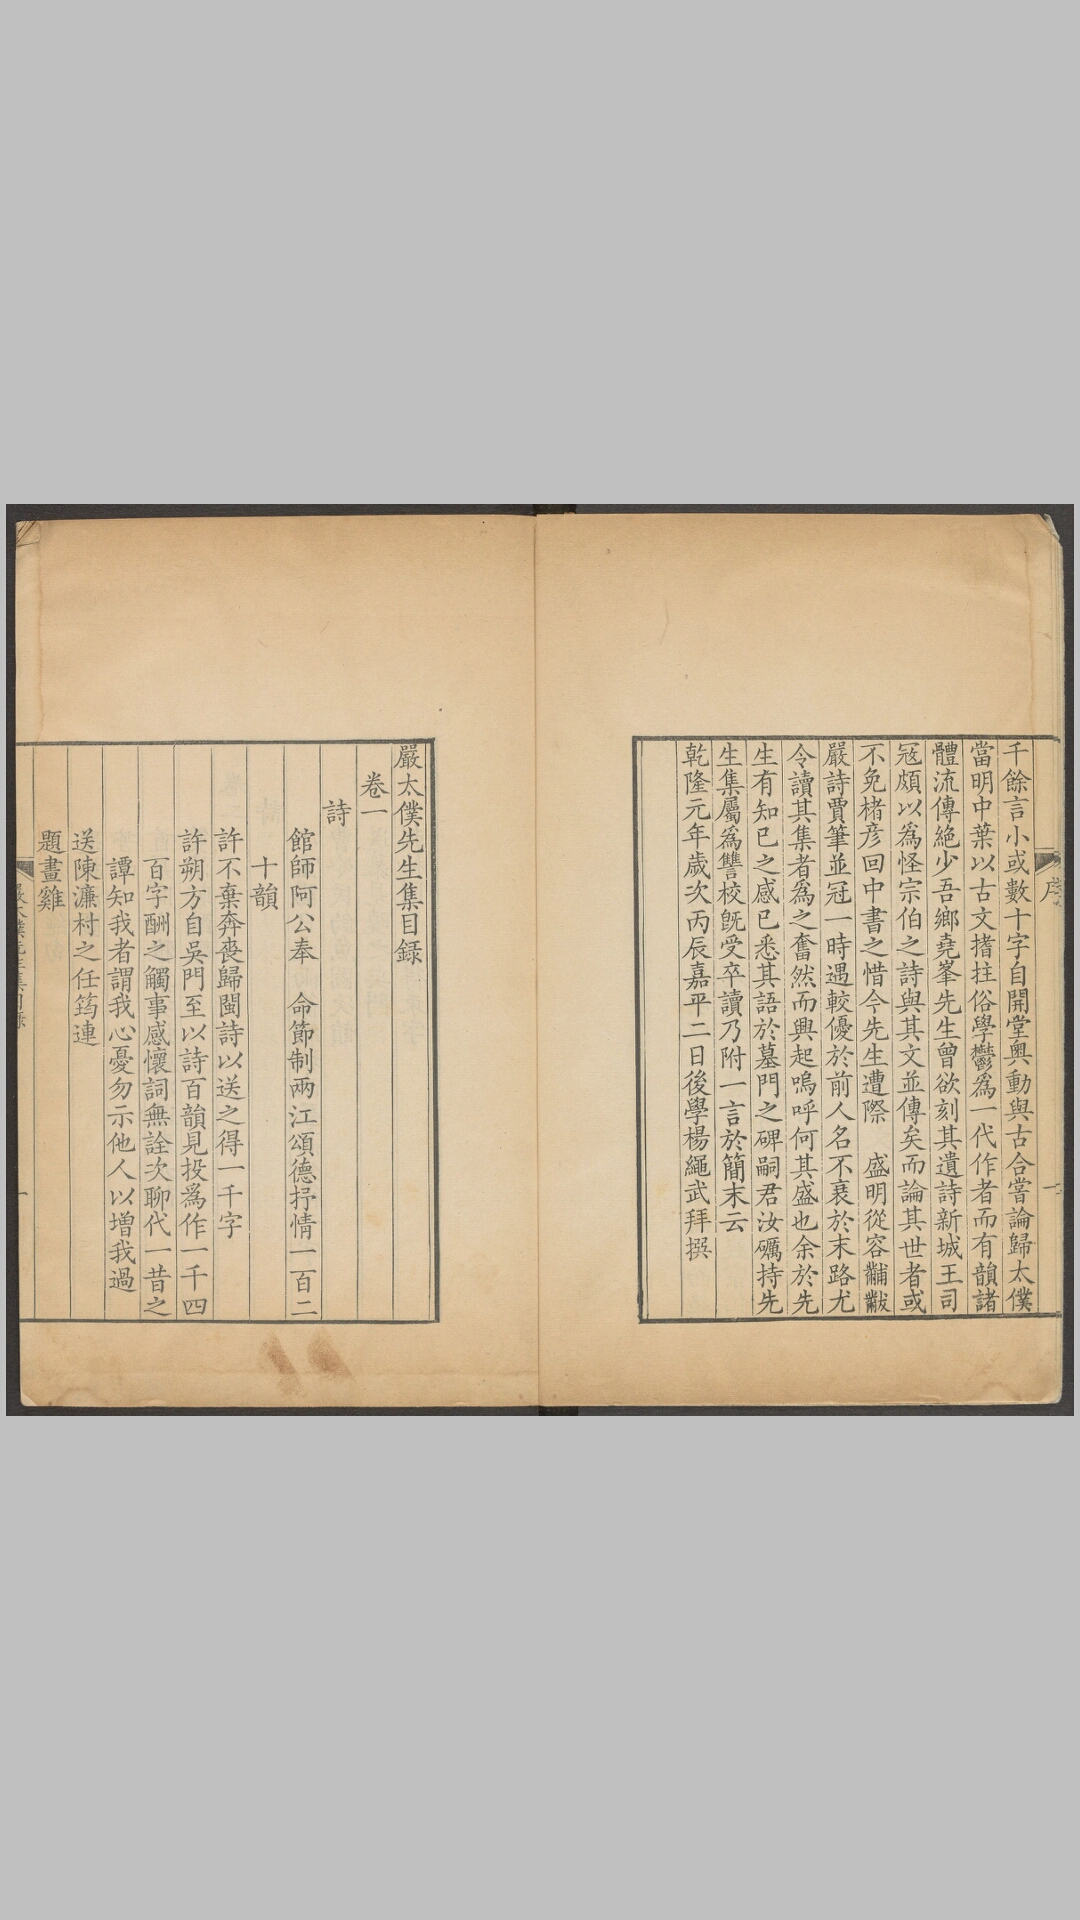 千餘言小或數十字自開堂奧動與古合嘗論歸太僕
當明中葉以古文搘拄俗學鬱爲一代作者而有韻諸
體流傳絕少吾鄉堯峯先生曾欲刻其遺詩新城王司
寇頗以爲怪宗伯之詩與其文並傳矣而論其世者或
不免楮彦回中書之惜今先生遭際 盛明從容黼黻
嚴詩賈筆並冠一時遇較優於前人名不衰於末路尤
令讀其集者爲之奮然而興起嗚呼何其盛也余於先
生有知已之感已悉其語於墓門之碑嗣君汝礪持先
生集屬爲讐校旣受卒讀乃附一言於簡末云
乾隆元年歲次丙辰嘉平二日後學楊繩武拜撰
嚴太僕先生集目錄
卷一
詩
館師阿公奉 命節制兩江頌德抒情一百二
十韻
許不棄奔喪歸閩詩以送之得一千字
許朔方自吳門至以詩百韻見投爲作一千四
百字酬之觸事感懷詞無詮次聊代一昔之
譚知我者謂我心憂勿示他人以增我過
送陳濂村之任筠連
題畫雞